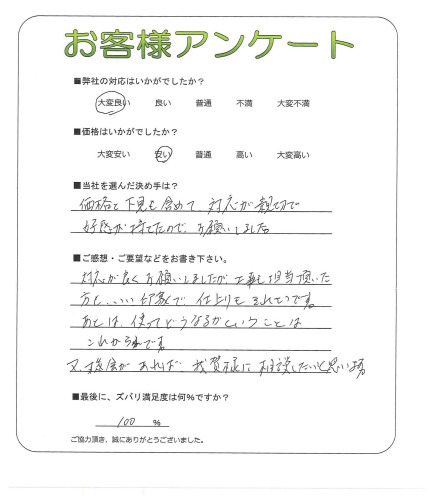 お客様アンケート
■弊社の対応はいかがでしたか？
大変良い 良い 普通 不満 大変不満
■価格はいかがでしたか？
大変安い 安い 普通 高い 大変高い
■当社を選んだ決め手は？
価格と下見も含めて、対応が親切で
好感が持てたので、お願いしました
■ご感想・ご要望などをお書き下さい。
対応が良くお願いしましたが工事も担当頂いた
方も、いい印象で、仕上りもきれいです。
あとは、使ってどうなるかということは
これからです。
又、機会があれば、 様に相談したいと思います
■最後に、ズバリ満足度は何％ですか？
100 ％
ご協力頂き、誠にありがとうございました。